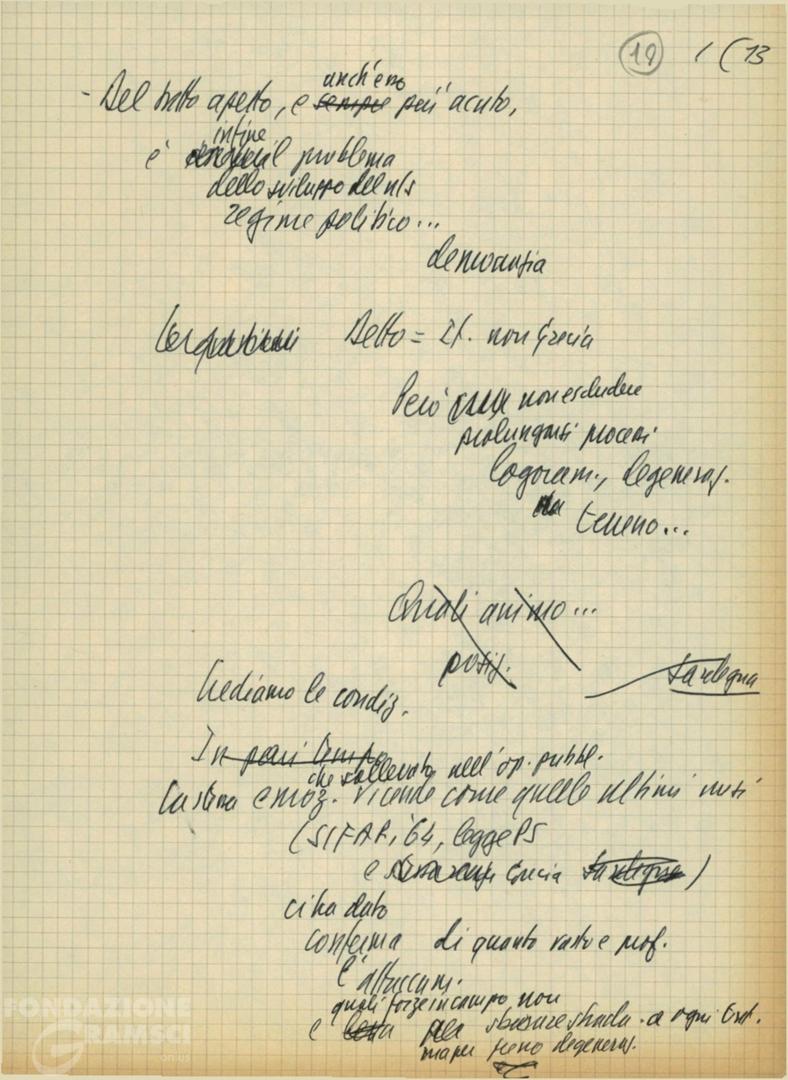 19 1(13
anch'esso
- Del tutto aperto, e sempre più acuto,
infine
è il problema
dello sviluppo del n/s
regime politico...
democrazia
Detto = It. non Grecia
Però non escludere
prolungarsi processi
logoram., degeneraz.
terreno...
Quali animo...
posiz.
Sardegna
Vediamo le condiz.
In pari tempo
che sollevato nell'op. pubbl.
La stessa emoz. vicende come quelle ultimi mesi
(SIFAR, '64, legge PS
e Grecia Sardegna)
ci ha dato
conferma di quanto vasto e prof.
è attaccam.
quali forze in campo non
e per sbarrare strada a ogni tent.
ma per freno degeneraz.
FONDAZIONE